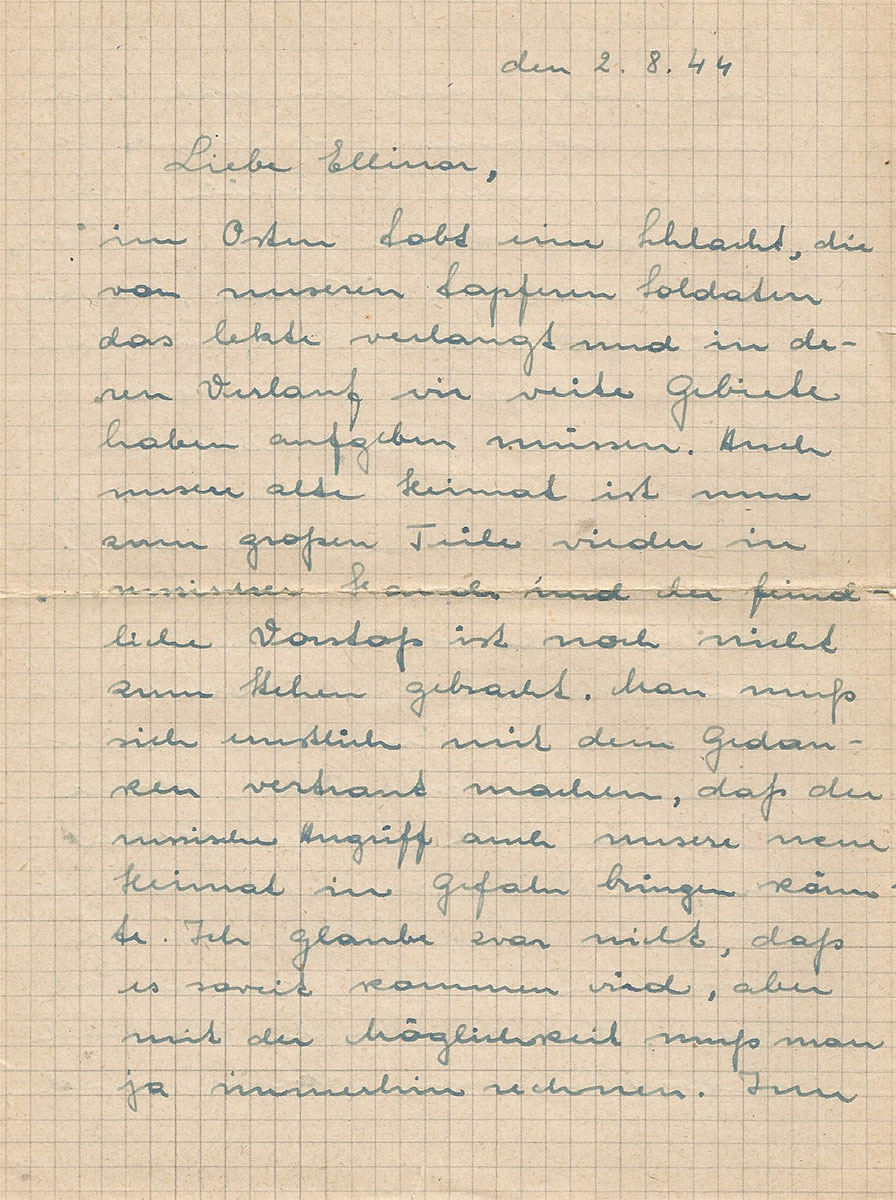 den 2. 8. 44
Liebe Ellinor,
im Osten tobt eine Schlacht, die
von unseren tapferen Soldaten
das letzte verlangt und in de-
ren Verlauf wir weite Gebiete
haben aufgeben müssen. Auch
unsere alte Heimat ist nun
zum großen Teile wieder in
russischer Hand und der feind-
liche Vorstoß ist noch nicht
zum Stehen gebracht. Man muß
sich ernstlich mit dem Gedan-
ken vertraut machen, daß der
russische Angriff auch unsere neue
Heimat in Gefahr bringen könn-
te. Ich glaube zwar nicht, daß
es soweit kommen wird, aber
mit der Möglichkeit muß man
ja immerhin rechnen. Im